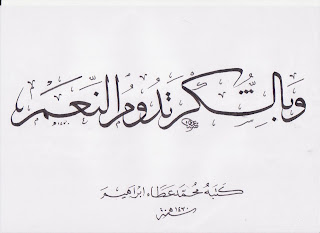 وَبِالشُّكْرِ تَدُومُ النِّعَمُ
كتبه محمد عطاء ابراهيم
سنة ١٤٣٠هـ